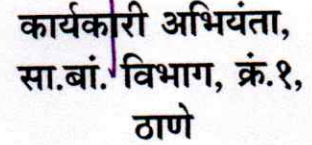 कार्यकारी अभियंता,
सा.बां. विभाग, क्रं.१,
ठाणे